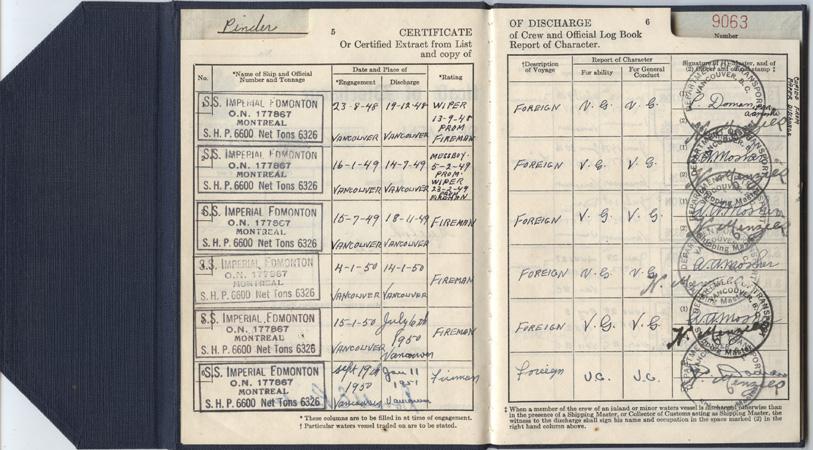 Pinder
5
CERTIFICATE
Or Certified Extract from List
and copy of
No.
*Name of Ship and Official Number and Tonnage
Date and Place of
*Engagement
Discharge
*Rating
S.S. IMPERIAL EDMONTON
O.N. 177867
MONTREAL
S. H. P. 6600 Net Tons 6326
23-8-48
VANCOUVER
19-12-48
VANCOUVER
WIPER
13-9-48
PROM
FIREMAN
S.S. IMPERIAL EDMONTON
O.N. 177867
MONTREAL
S. H. P. 6600 Net Tons 6326
16-1-49
VANCOUVER
14-7-49
VANCOUVER
MESSBOY
5-2-49
PROM
WIPER
23-2-49
FIREMAN
S.S. IMPERIAL EDMONTON
O.N. 177867
MONTREAL
S. H. P. 6600 Net Tons 6326
15-7-49
VANCOUVER
18-11-49
VANCOUVER
FIREMAN
S.S. IMPERIAL EDMONTON
O.N. 177867
MONTREAL
S. H. P. 6600 Net Tons 6326
4-1-50
VANCOUVER
14-1-50
VANCOUVER
FIREMAN
S.S. IMPERIAL EDMONTON
O.N. 177867
MONTREAL
S. H. P. 6600 Net Tons 6326
15-1-50
VANCOUVER
July 6th
1950
Vancouver
FIREMAN
S.S. IMPERIAL EDMONTON
O.N. 177867
MONTREAL
S. H. P. 6600 Net Tons 6326
Sept 19th
1950
Vancouver
Jan 11
1951
Vancouver
Fireman
* These columns are to be filled in at time of engagement.
† Particular waters vessel traded on are to be stated.
OF DISCHARGE
6
9063
Number
of Crew and Official Log Book
Report of Character.
†Description of Voyage
Report of Character
For ability
For General Conduct
Signature of Master, and of
FOREIGN V. G. V. G.
FOREIGN V. G. V. G.
FOREIGN V. G. V. G.
FOREIGN V. G. V. G.
FOREIGN V. G. V. G.
Foreign V.G. V.G.
DEPARTMENT OF TRANSPORT
VANCOUVER, B. C.
Shipping Master
‡ When a member of the crew of an inland or minor waters vessel is discharged otherwise than
in the presence of a Shipping Master, or Collector of Customs acting as Shipping Master, the
witness to the discharge shall sign his name and occupation in the space marked (2) in the
right hand column above.